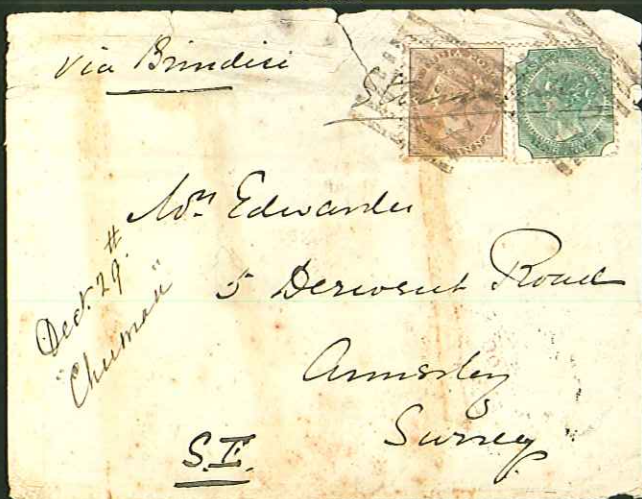 Via Brindisi
Mrs Edwardes
5 Derwent Road
Annerley
Surrey
S.E.
Dect. 29th
"Chuman"